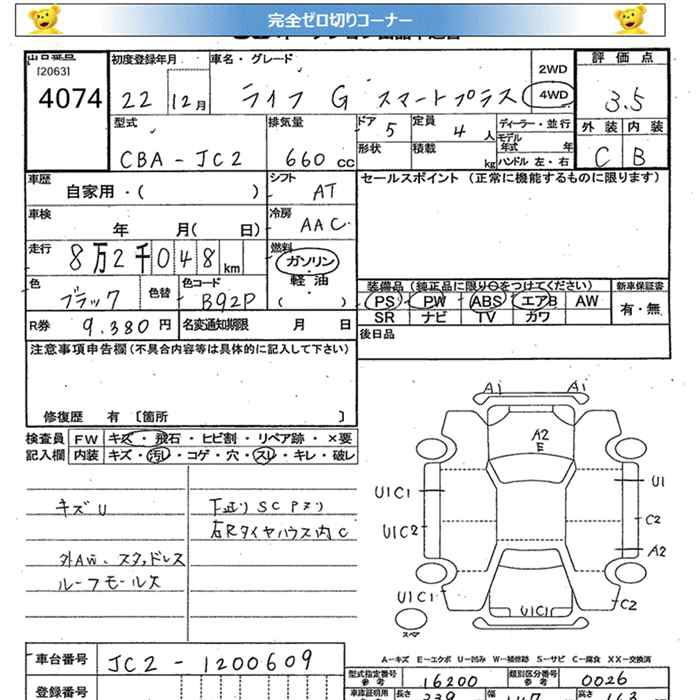 完全ゼロ切りコーナー
出品番号
[2063]
4074
初度登録年月
22 12月
車名・グレード
ライフ G スマートプラス
2WD
4WD
評価点
3.5
外装 内装
C B
型式
CBA-JC2
排気量
660 cc
ドア 5
定員 4 人
形状
積載 kg
ディーラー・並行
モデル年式 年
ハンドル 左・右
車歴
自家用・( )
シフト
AT
セールスポイント (正常に機能するものに限ります)
車検
年 月( 日)
冷房
AAC
走行
8万2千048 km
燃料
ガソリン
軽油
( )
色
ブラック
色替
色コード
B92P
装備品 (純正品に限り○をつけてください)
PS PW ABS エアB AW
SR ナビ TV カワ
新車保証書
有・無
R券 9.380 円
名変通知期限 月 日
後日品
注意事項申告欄 (不具合内容等は具体的に記入して下さい)
修復歴 有 [箇所 ]
検査員 記入欄
FW キズ・飛石・ヒビ割・リペア跡・×要
内装 キズ・汚レ・コゲ・穴・スレ・キレ・破レ
キズU
外AW、スタッドレス
ルーフモールス
下廻りSCアリ
右Rタイヤハウス内C
A1 A1
A2
E
U1C1
U1
U1C2
C2
A2
U1C1
U1C1
C2
スペア
A-キズ E-エクボ U-凹み W-補修跡 S-サビ C-腐食 XX-交換済
車台番号
JC2-1200609
型式指定番号 参考
16200
類別区分番号 参考
0026
登録番号
車庫証明用
長さ
339
幅
147
高さ
163